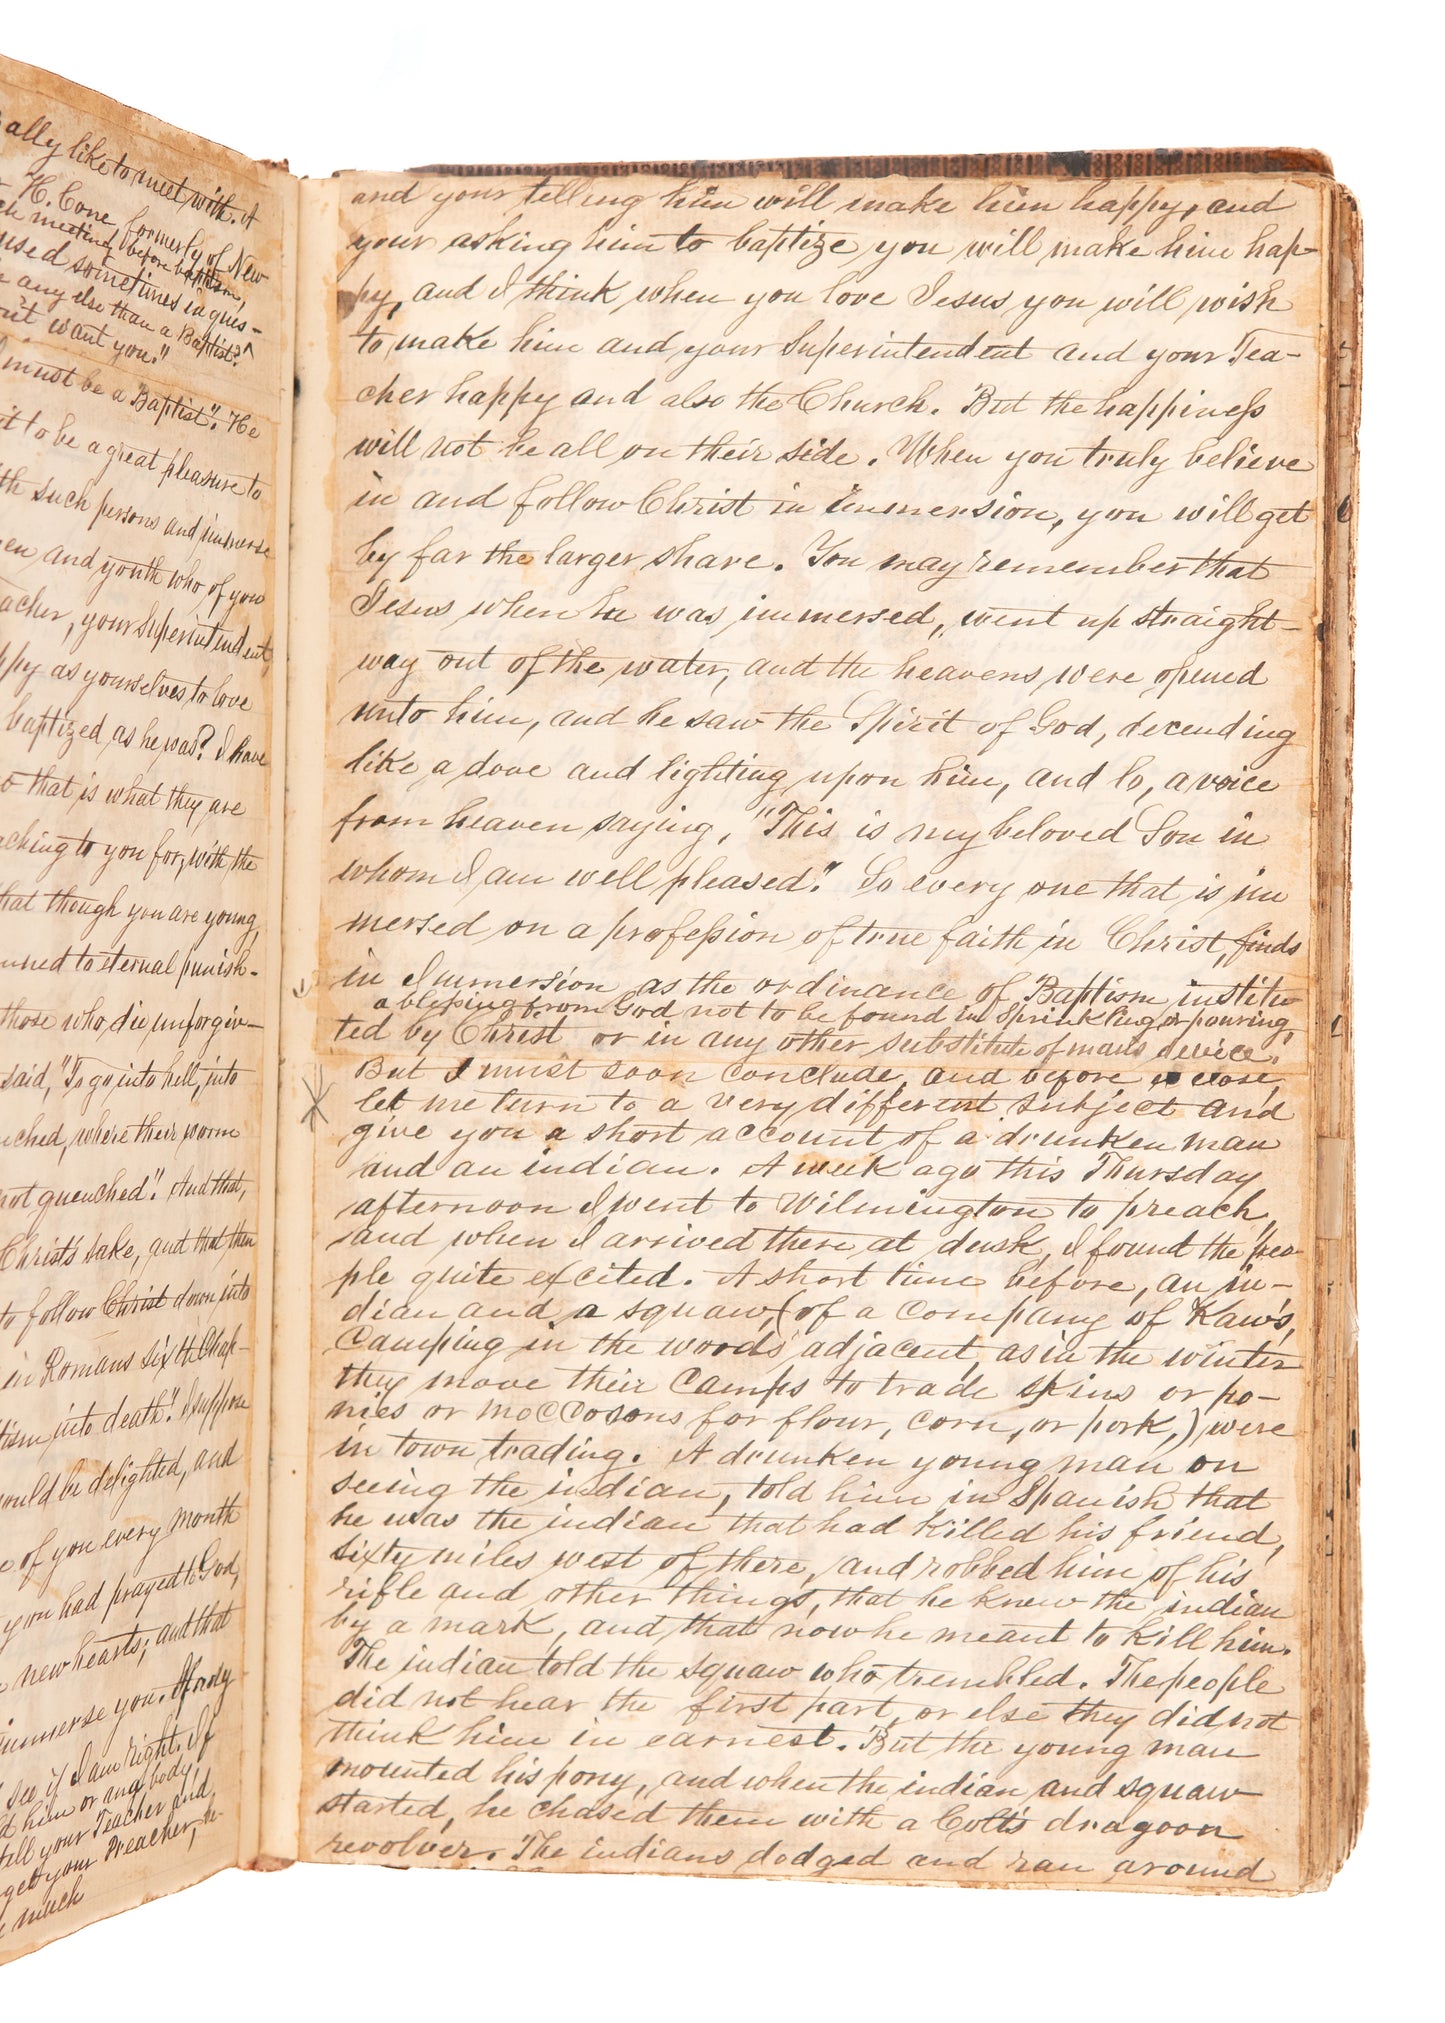 ally like to meet with. A
H. Cone, formerly of New
meeting, before baptism,
used sometimes in ques-
any else than a Baptist?
want you."
must be a Baptist". He
it to be a great pleasure to
such persons and immerse
and youth who of you
acher, your Superintendent,
ppy as yourselves to love
baptized as he was? I have
that is what they are
aching to you for, with the
hat though you are young,
mned to eternal punish-
those who die unforgiv-
said, "To go into hell, into
nched, where their worm
not quenched". And that,
Christ's sake, and that then
to follow Christ down into
in Romans sixth Chap-
tism into death". I suppose
would be delighted, and
of you every month
you had prayed to God,
new hearts; and that
immerse you.
see if I am right. If
him or any body
tell your Teacher and
get your Preacher,
much
and your telling him will make him happy, and
your asking him to baptize you will make him hap-
py, and I think when you love Jesus you will wish
to make him and your Superintendent and your Tea-
cher happy and also the Church. But the happiness
will not be all on their side. When you truly believe
in and follow Christ in immersion, you will get
by far the larger share. You may remember that
Jesus when he was immersed, "went up straight-
way out of the water, and the heavens were opened
unto him, and he saw the Spirit of God, decending
like a dove and lighting upon him, and lo, a voice
from heaven saying, "This is my beloved Son in
whom I am well pleased". So every one that is im
mersed on a profession of true faith in Christ, finds
in Immersion as the ordinance of Baptism institu-
a blessing from God not to be found in Sprinkling or pouring,
ted by Christ or in any other substitute of man's device.
But I must soon conclude, and before I close,
let me turn to a very different subject and
give you a short account of a drunken man
and an indian. A week ago this Thursday
afternoon I went to Wilmington to preach,
and when I arrived there at dusk, I found the peo-
ple quite excited. A short time before, an in-
dian and a squaw, (of a company of Kaw's,
camping in the woods adjacent, as in the winter
they move their camps to trade skins or po-
nies or moccosons for flour, corn, or pork,) were
in town trading. A drunken young man on
seeing the indian, told him in Spanish that
he was the indian that had killed his friend,
sixty miles west of there, and robbed him of his
rifle and other things, that he knew the indian
by a mark, and that now he meant to kill him.
The indian told the squaw who trembled. The people
did not hear the first part, or else they did not
think him in earnest. But the young man
mounted his pony, and when the indian and squaw
started, he chased them with a Colt's dragoon
revolver. The indians dodged and ran around